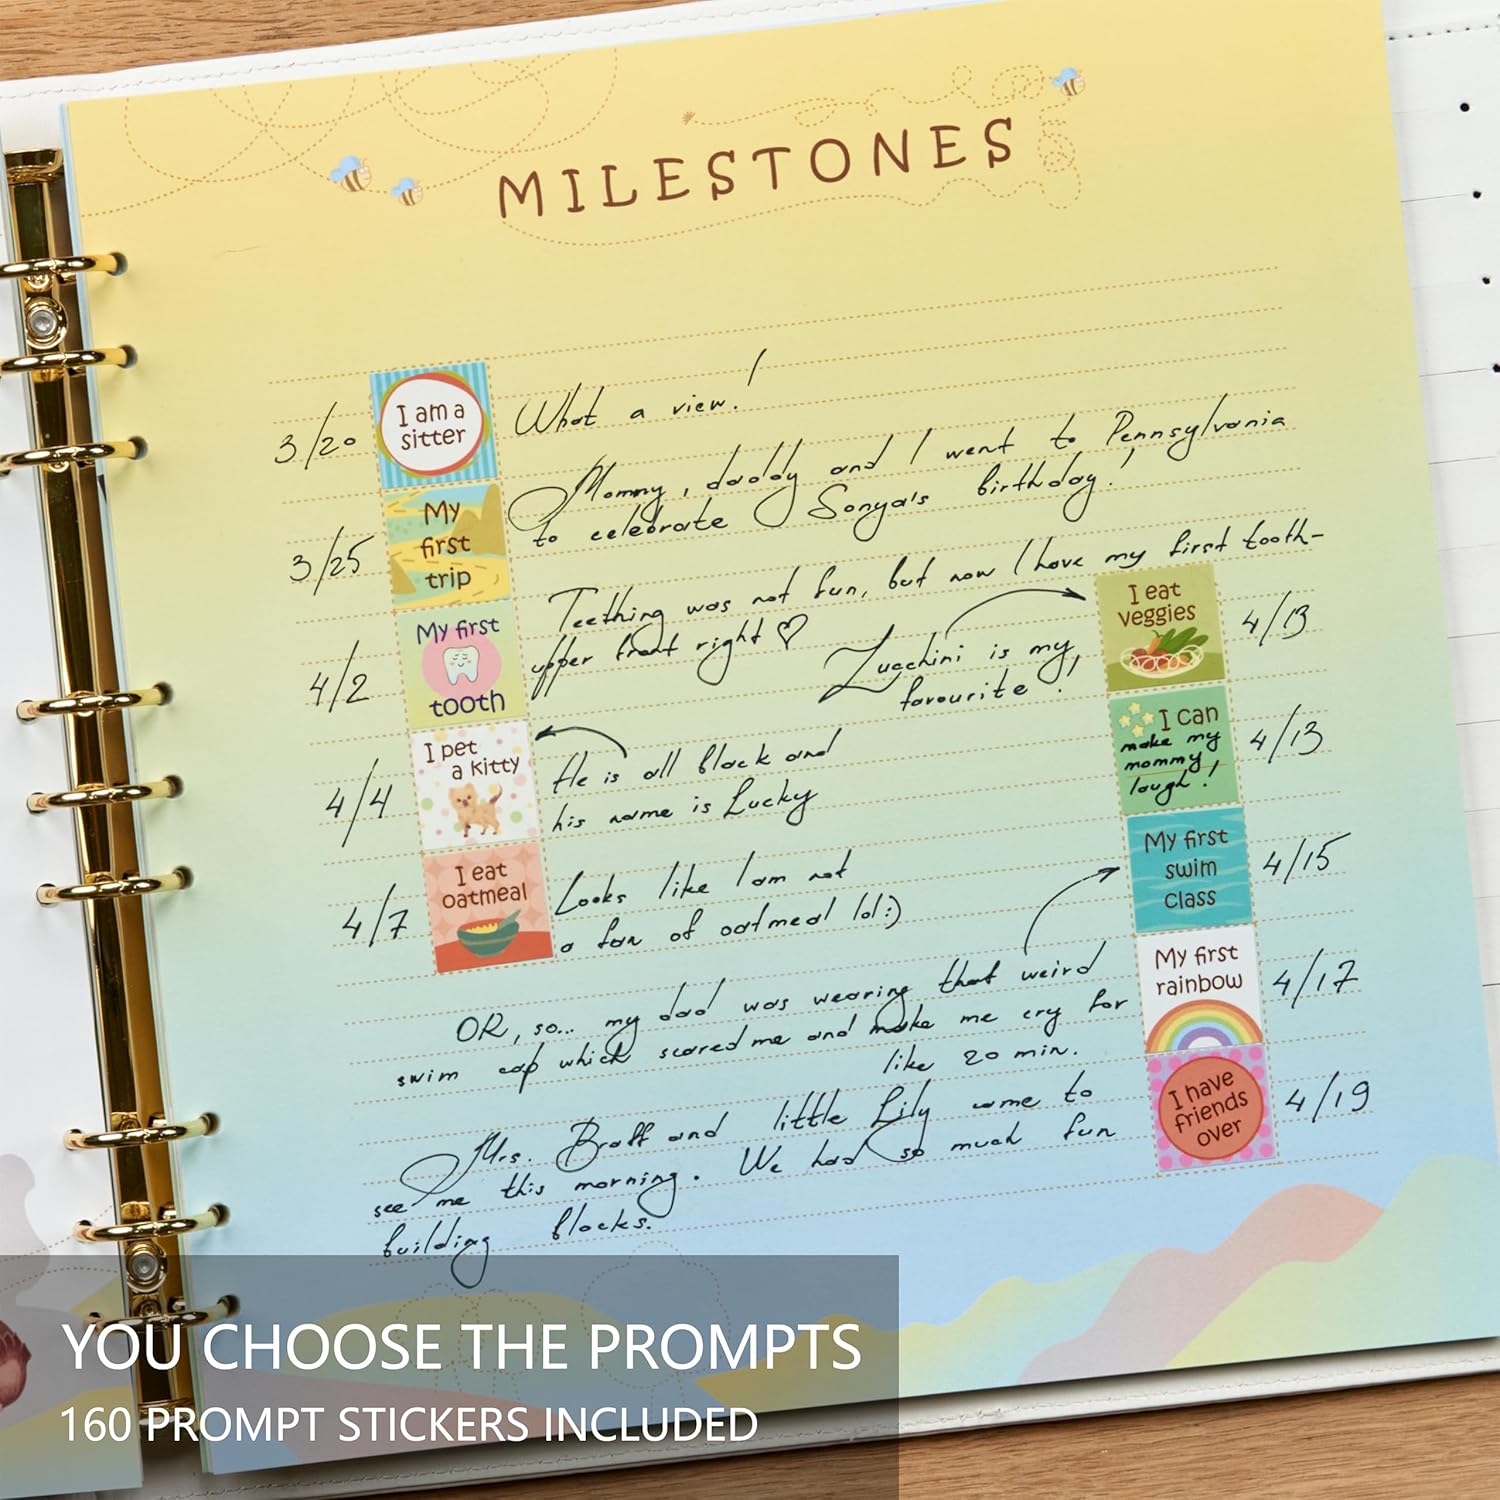 MILESTONES
3/20
I am a
sitter
What a view!
3/25
My
first
trip
Mommy, daddy and I went to Pennsylvania
to celebrate Sonya's birthday!
4/2
My first
tooth
Teething was not fun, but now I have my first tooth-
upper front right ♡
4/4
I pet
a kitty
He is all black and
his name is Lucky
4/7
I eat
oatmeal
Looks like I am not
a fan of oatmeal lol:)
Zucchini is my
favourite!
I eat
veggies
4/13
I can
make my
mommy
laugh!
4/13
My first
swim
class
4/15
OR, so... my dad was wearing that weird
swim cap which scared me and make me cry for
like 20 min.
My first
rainbow
4/17
Mrs. Braff and little Lily came to
see me this morning. We had so much fun
building blocks.
I have
friends
over
4/19
YOU CHOOSE THE PROMPTS
160 PROMPT STICKERS INCLUDED